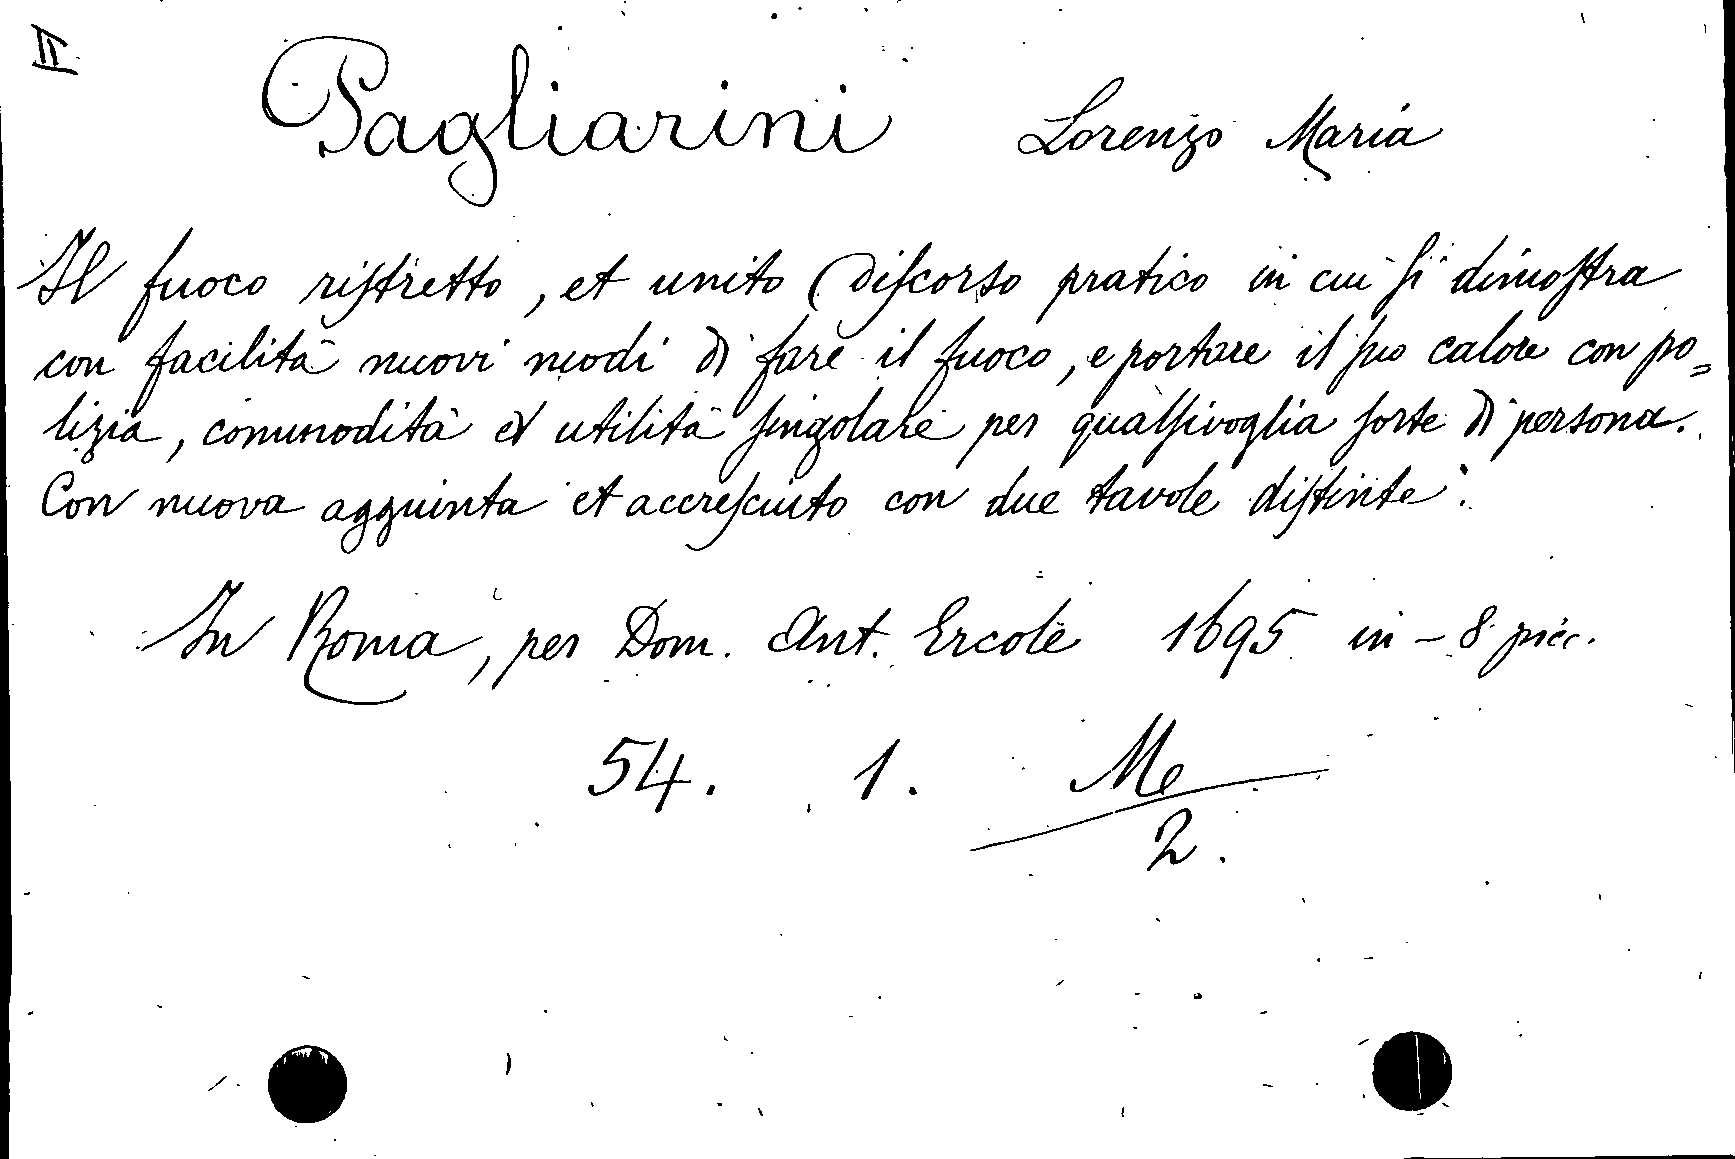 II
Pagliarini Lorenzo Maria
Il fuoco riſtretto, et unito (Diſcorso pratico in cui ſi dimoſtra
con facilità nuovi modi di fare il fuoco, e portare il ſuo calore con po=
lizia, commodità et utilità ſingolare per qualſivoglia ſorte di persona.
Con nuova aggiunta et accreſciuto con due tavole diſtinte.
In Roma, per Dom. Ant. Ercole 1695 in-8 picc.
54. 1. Me
2.